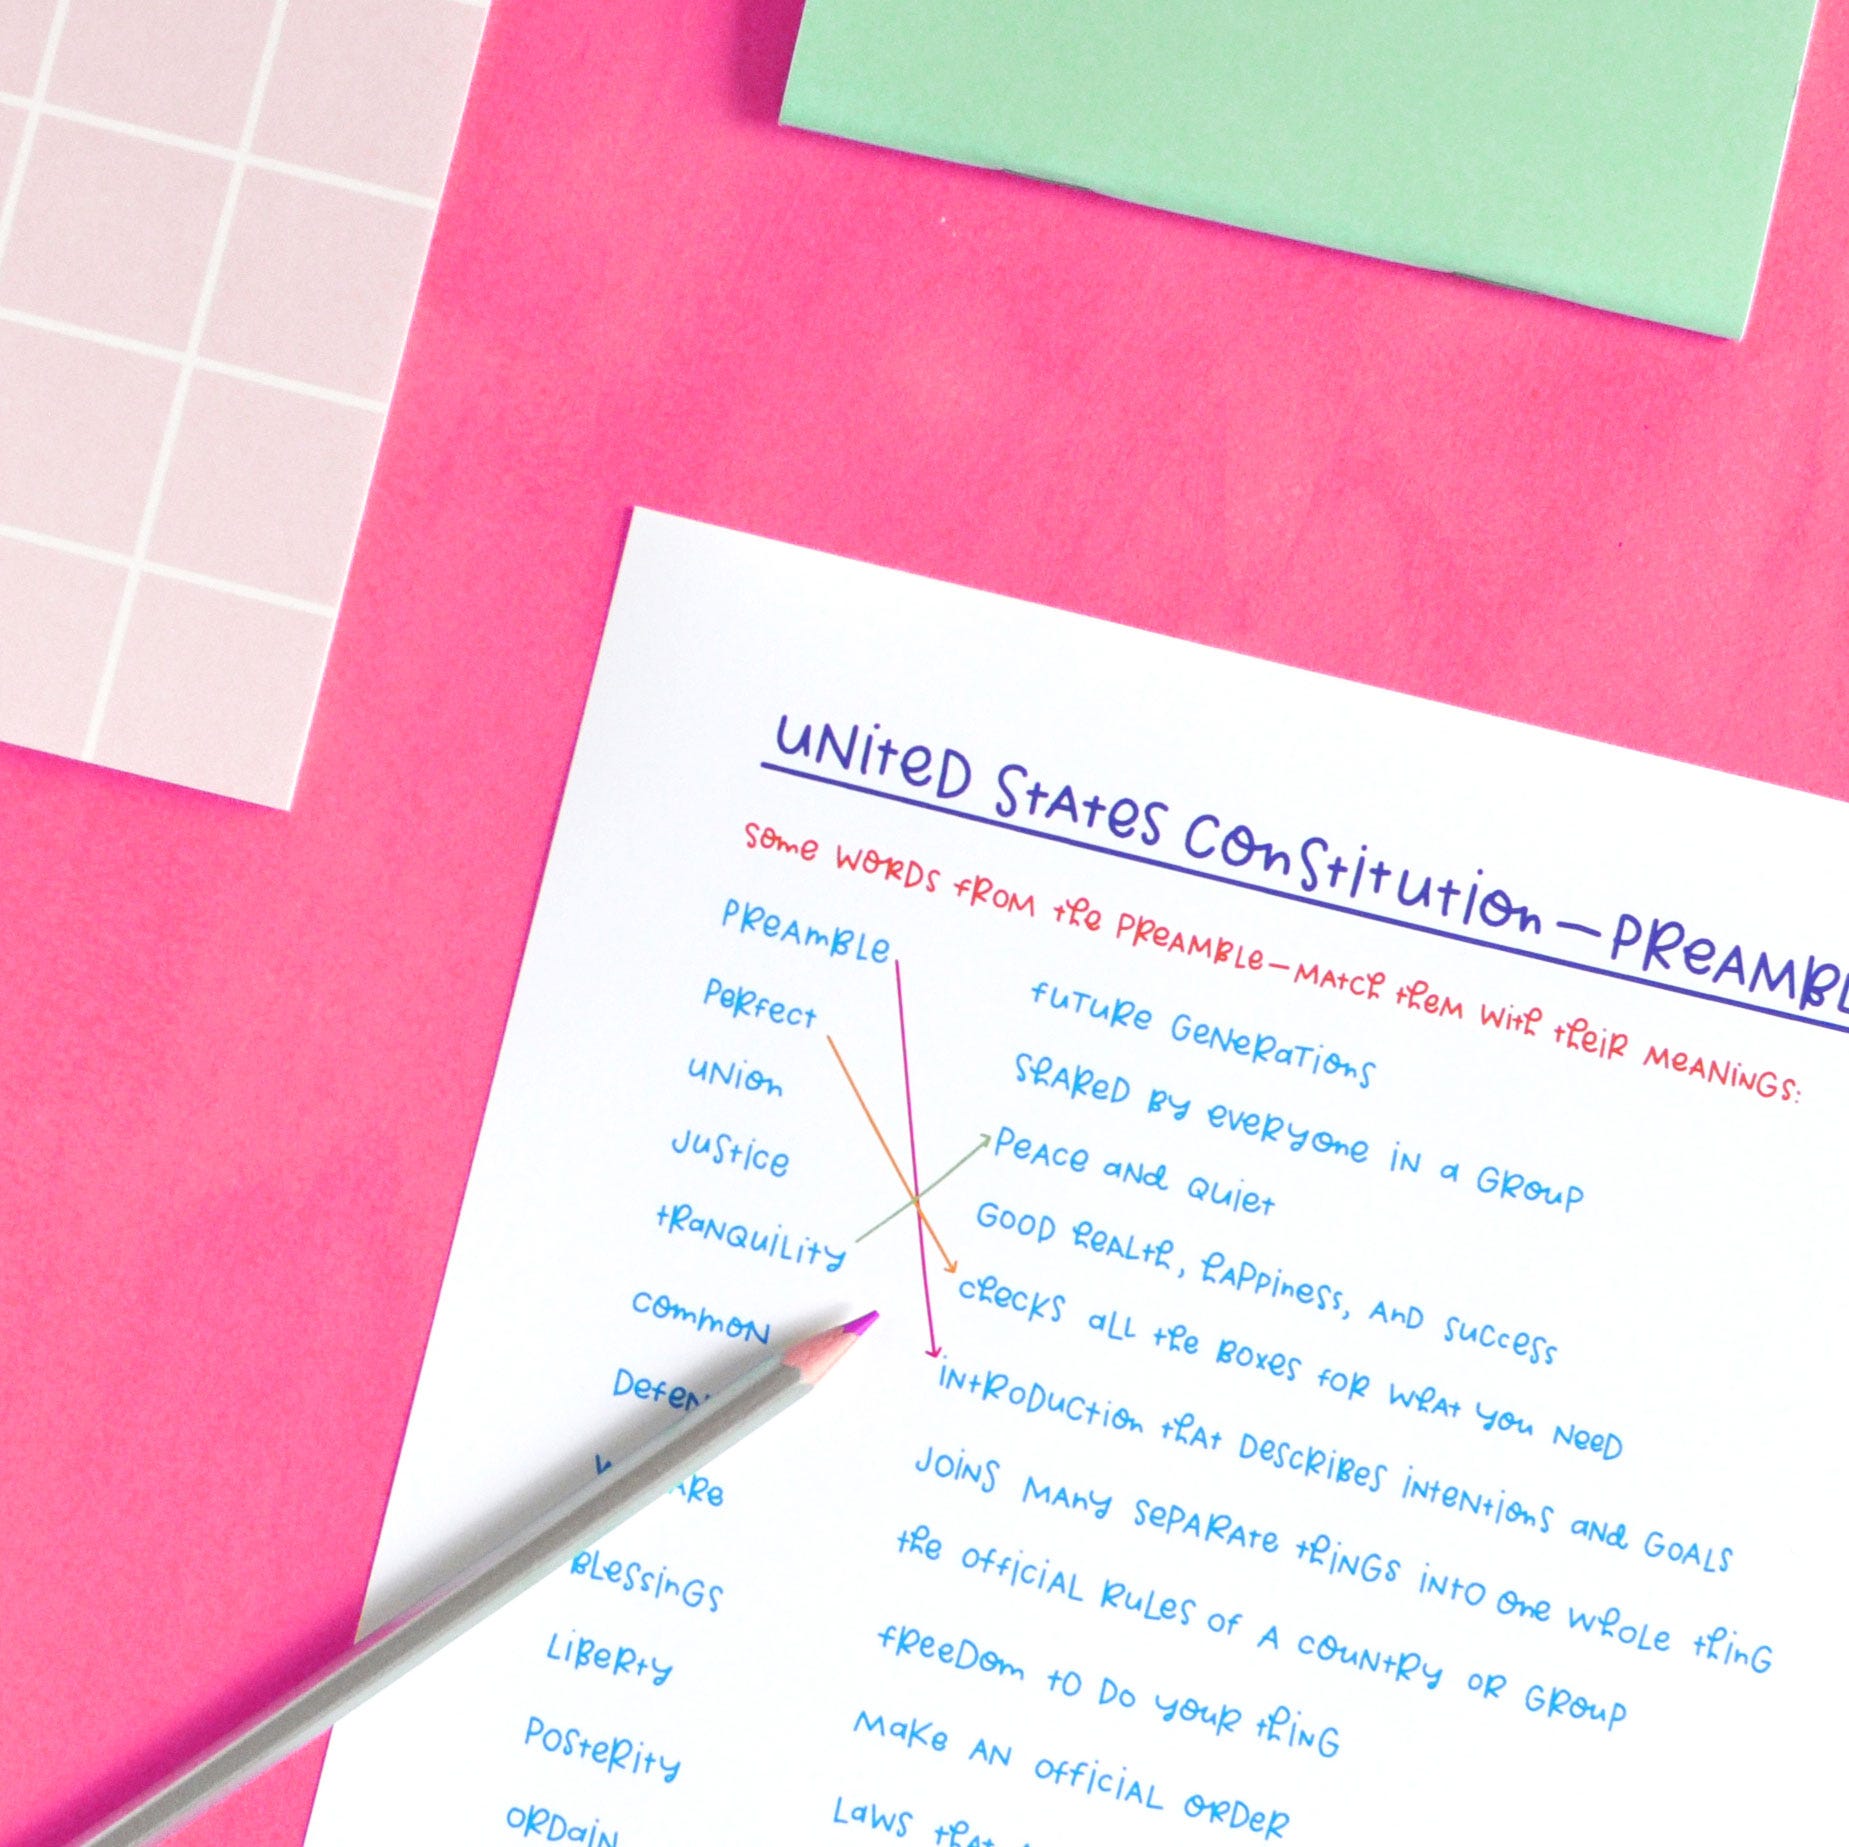 United States Constitution—Preambl
Some words from the Preamble—match them with their meanings:
Preamble
Perfect
Union
Justice
Tranquility
Common
Defen
Blessings
Liberty
Posterity
Ordain
future generations
shared by everyone in a group
peace and quiet
good health, happiness, and success
checks all the boxes for what you need
introduction that describes intentions and goals
joins many separate things into one whole thing
the official rules of a country or group
freedom to do your thing
make an official order
laws that